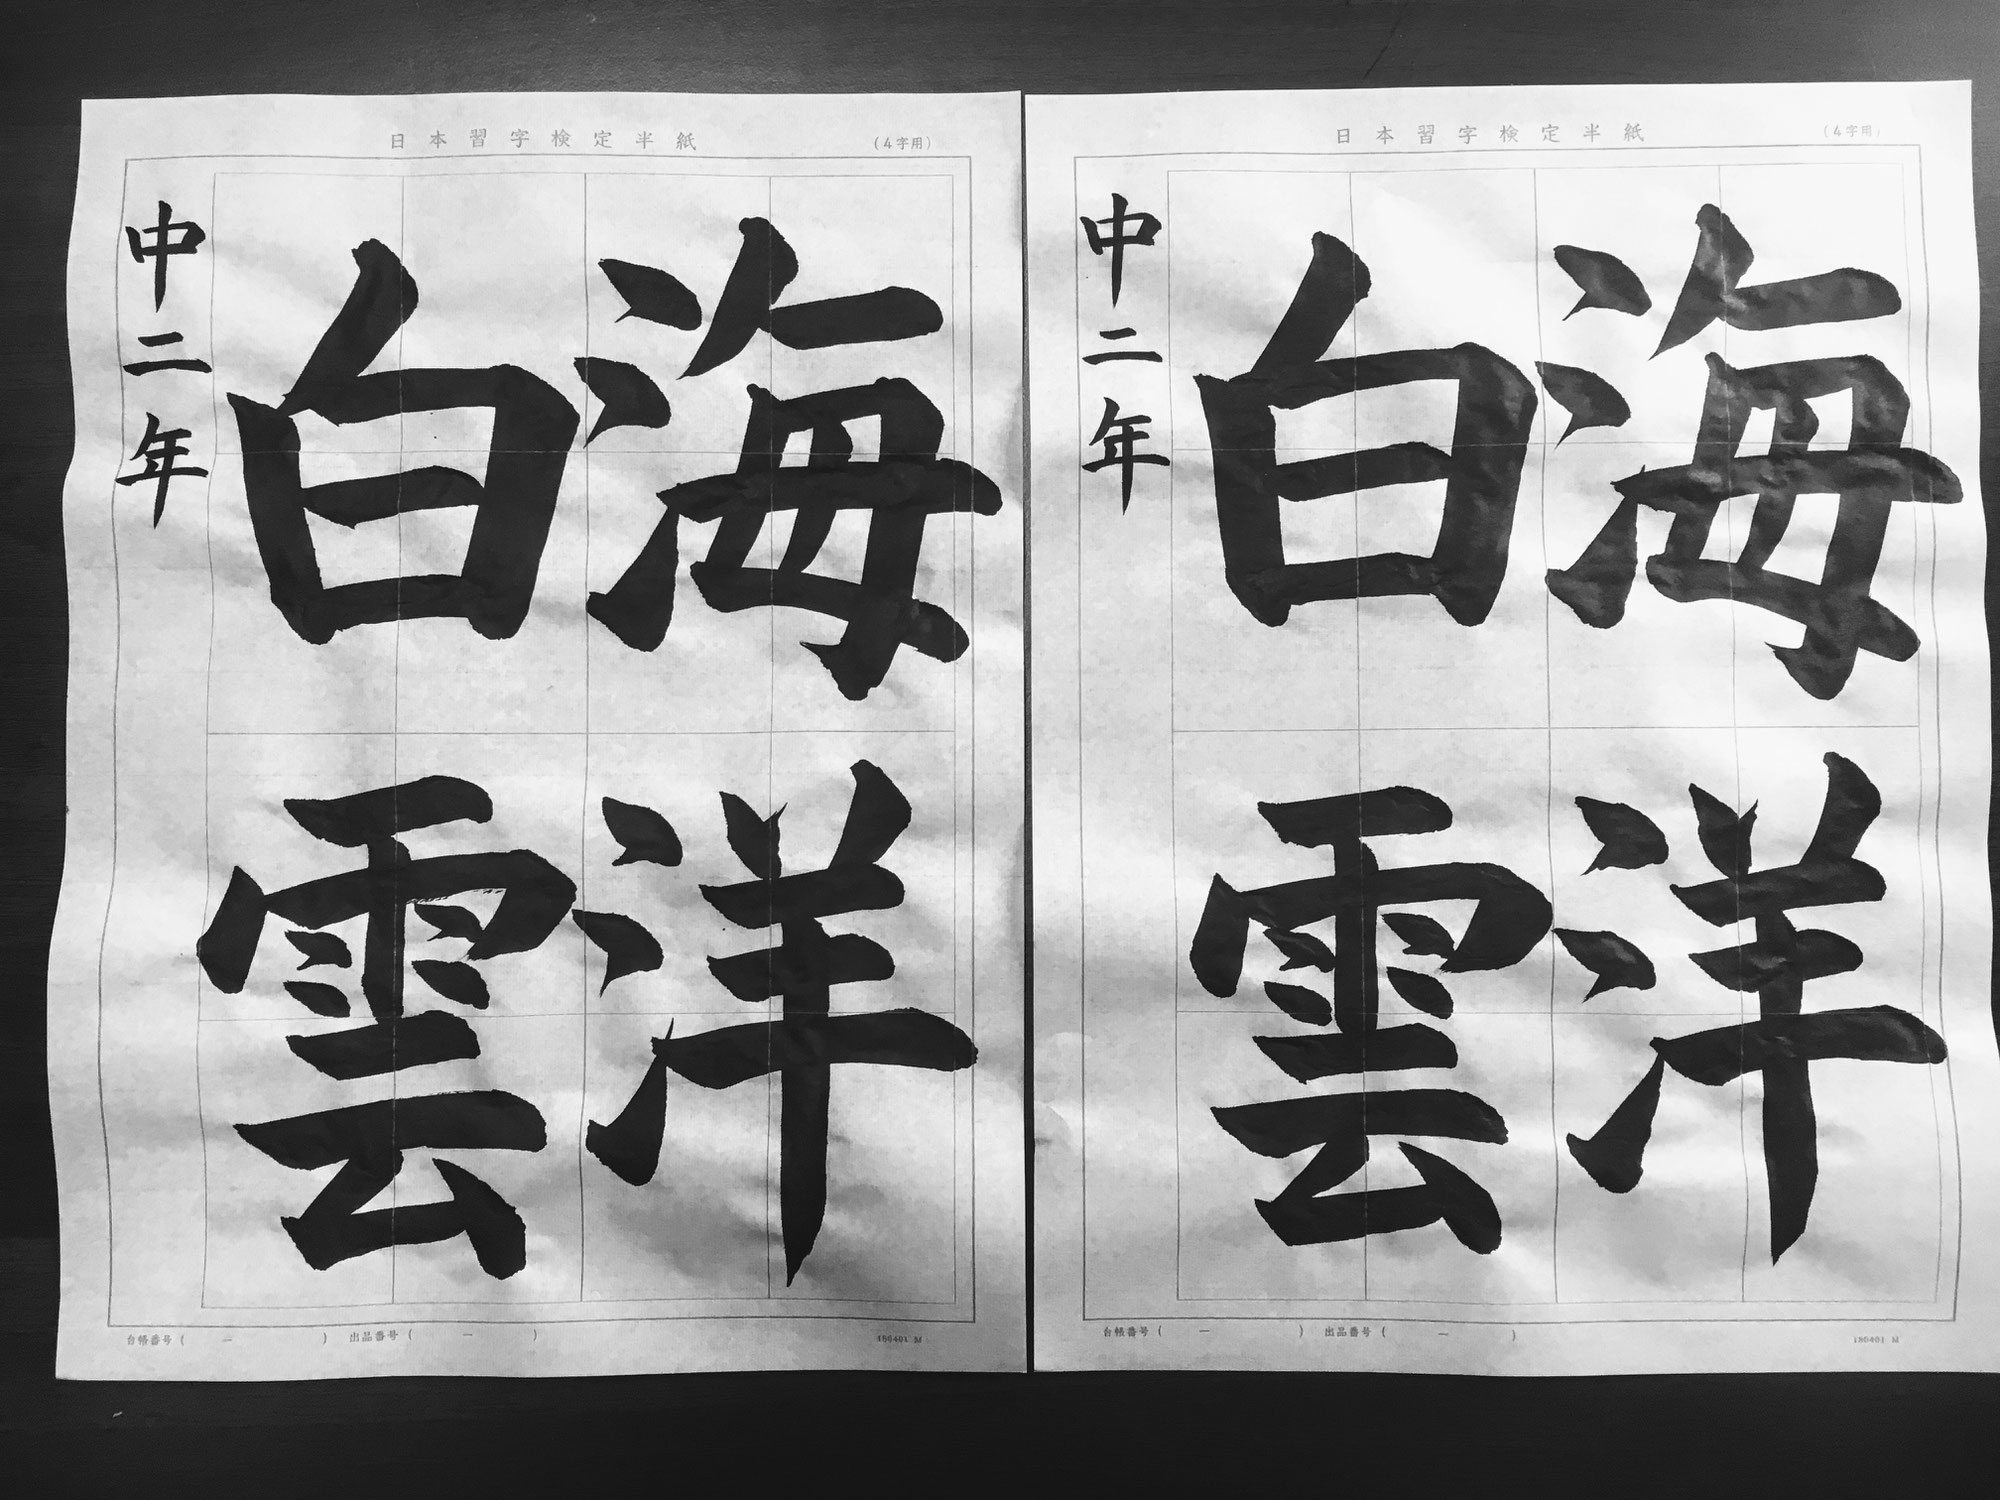 日本習字検定半紙
(4字用)
海洋
白雲
中二年
台帳番号( ー ) 出品番号( ー )
186401 M
日本習字検定半紙
(4字用)
海洋
白雲
中二年
台帳番号( ー ) 出品番号( ー )
186401 M